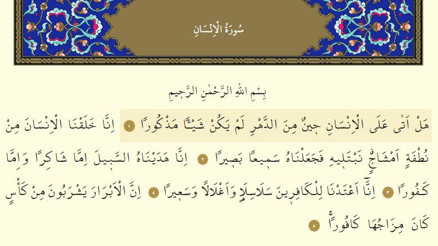 سُورَةُ الْاِنْسَانِ
بِسْمِ اللهِ الرَّحْمٰنِ الرَّح۪يمِ
هَلْ اَتٰى عَلَى الْاِنْسَانِ ح۪ينٌ مِنَ الدَّهْرِ لَمْ يَكُنْ شَيْـًٔا مَذْكُورًا ﴿١﴾ اِنَّا خَلَقْنَا الْاِنْسَانَ مِنْ
نُطْفَةٍ اَمْشَاجٍۗ نَبْتَل۪يهِ فَجَعَلْنَاهُ سَم۪يعًا بَص۪يرًا ﴿٢﴾ اِنَّا هَدَيْنَاهُ السَّب۪يلَ اِمَّا شَاكِرًا وَاِمَّا
كَفُورًا ﴿٣﴾ اِنَّٓا اَعْتَدْنَا لِلْكَافِر۪ينَ سَلَاسِلَا۬ وَاَغْلَالًا وَسَع۪يرًا ﴿٤﴾ اِنَّ الْاَبْرَارَ يَشْرَبُونَ مِنْ كَأْسٍ
كَانَ مِزَاجُهَا كَافُورًاۚ ﴿٥﴾